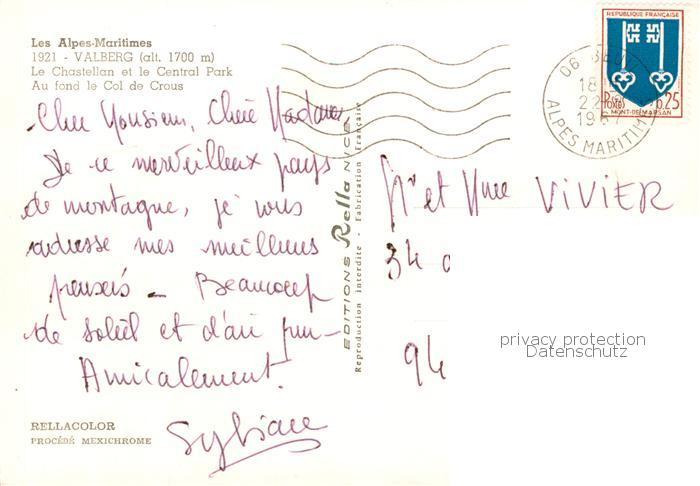 Les Alpes-Maritimes
1921 - VALBERG (alt. 1700 m)
Le Chastellan et le Central Park
Au fond le Col de Crous
Cher Monsieur, Chère Madame,
De ce merveilleux pays
de montagne, je vous
adresse mes meilleures
pensées - Beaucoup
de soleil et d'air pur -
Amicalement.
Sylviane
RELLACOLOR
PROCÉDÉ MEXICHROME
EDITIONS Rella NICE
Reproduction interdite - Fabrication Française
REPUBLIQUE FRANÇAISE
POSTES 0.25
MONT-DE-MARSAN
06
18
22
19
ALPES MARITIMES
Mr et Mme VIVIER
34
94
privacy protection
Datenschutz